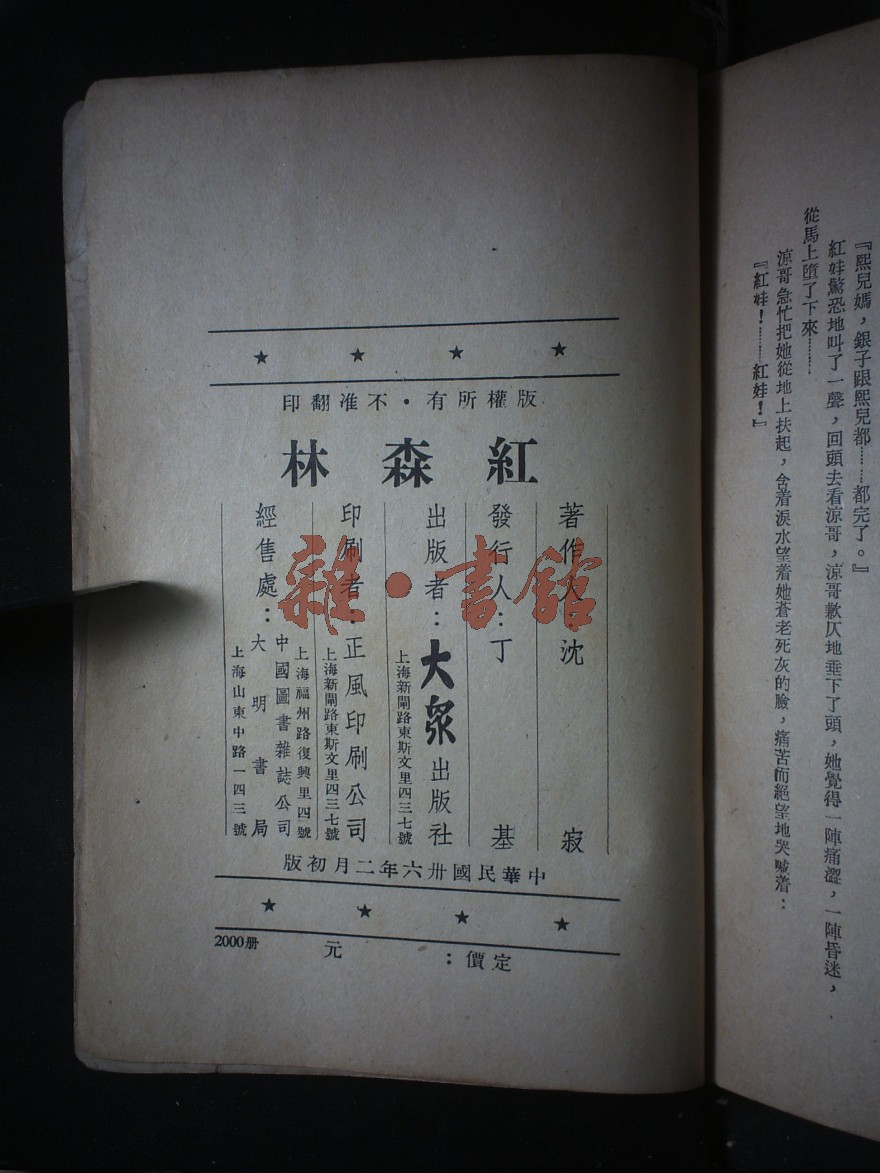 『熙兒媽，銀子跟熙兒都……都完了。』
紅娃驚恐地叫了一聲，回頭去看涼哥，涼哥歉仄地垂下了頭，她覺得一陣痛澀，一陣昏迷，
從馬上墮了下來………
涼哥急忙把她從地上扶起，含着淚水望着她蒼老死灰的臉，痛苦而絕望地哭喊着：
『紅娃！………紅娃！』
印翻准不・有所權版
林森紅
著作人：沈寂
發行人：丁基
出版者：大衆出版社
上海新閘路東斯文里四三七號
印刷者：正風印刷公司
上海新閘路東斯文里四三七號
經售處：
中國圖書雜誌公司
上海福州路復興里四號
大明書局
上海山東中路一四三號
版初月二年六卅國民華中
元 ：價定
2000册
雜・書館